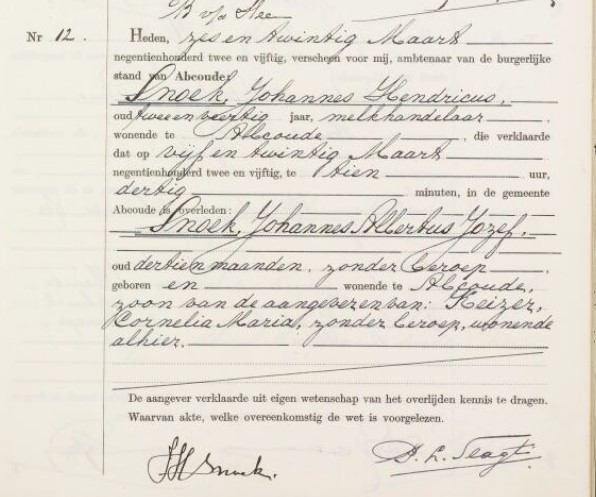 B v/d Hee
Nr 12. Heden, zes en twintig Maart
negentienhonderd twee en vijftig, verscheen voor mij, ambtenaar van de burgerlijke
stand van Abcoude,
Snoek, Johannes Hendricus,
oud twee en veertig jaar, melkhandelaar,
wonende te Abcoude, die verklaarde
dat op vijf en twintig Maart
negentienhonderd twee en vijftig, te tien uur,
dertig minuten, in de gemeente
Abcoude is overleden:
Snoek, Johannes Albertus Jozef,
oud dertien maanden, zonder beroep,
geboren en wonende te Abcoude,
zoon van de aangever en van: Keizer,
Cornelia Maria, zonder beroep, wonende
alhier.
De aangever verklaarde uit eigen wetenschap van het overlijden kennis te dragen.
Waarvan akte, welke overeenkomstig de wet is voorgelezen.
JHSnoek.